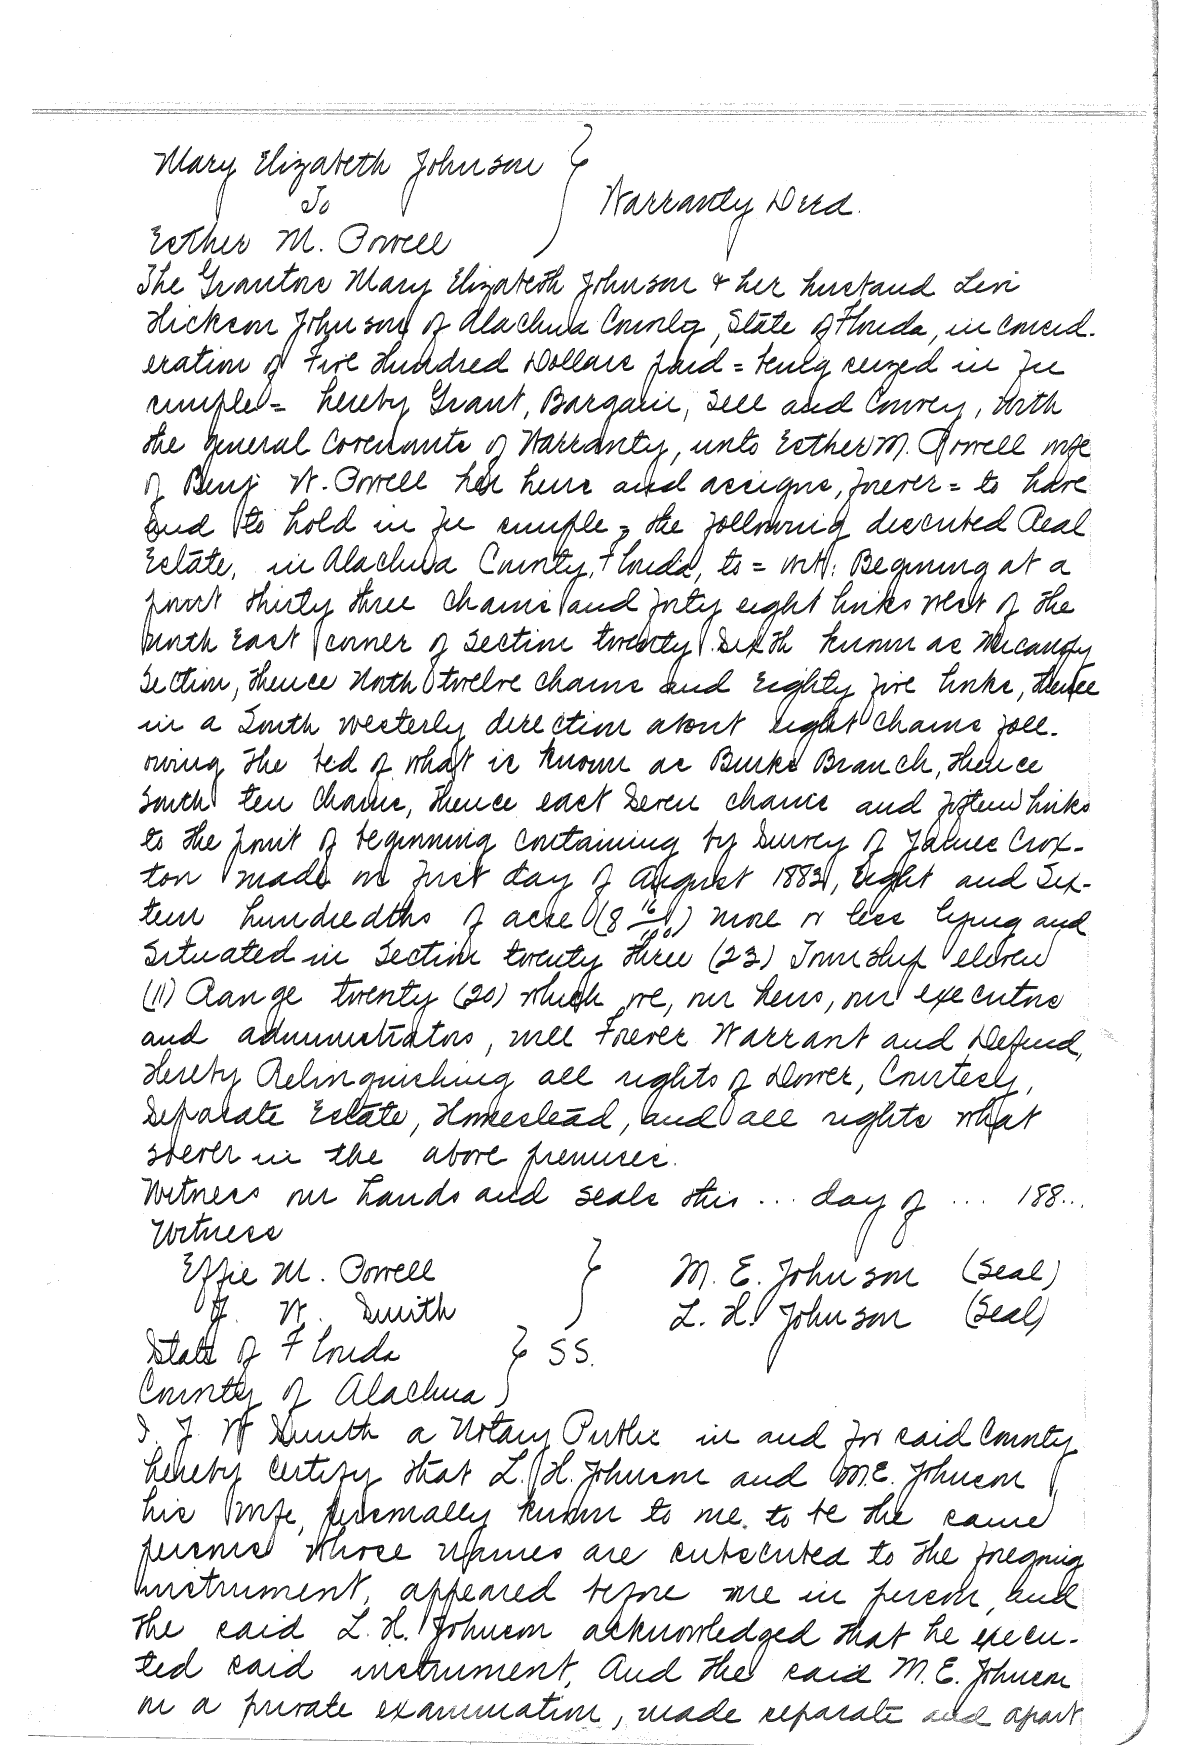 Mary Elizabeth Johnson }
To
Warranty Deed.
Esther M. Powell
The Grantors Mary Elizabeth Johnson & her husband Levi
Hickson Johnson of Alachua County, State of Florida, in consid-
eration of Five Hundred Dollars paid = being seized in fee
simple = hereby Grant, Bargain, Sell and Convey, with
the general Covenants of Warranty, unto Esther M. Powell wife
of Benj W. Powell her heirs and assigns, forever = to have
and to hold in fee simple = the following described Real
Estate, in Alachua County, Florida, to = wit: Beginning at a
point thirty three chains and forty eight links west of the
north East corner of Section twenty Sixth known as Micanopy
Section, thence North twelve chains and Eighty five links, thence
in a South westerly direction about eight chains foll-
owing the bed of what is known as Burks Branch, thence
South ten chains, thence east Seven chains and fifteen links
to the point of beginning containing by Survey of James Crox-
ton made on first day of August 1883, Eight and Six-
teen hundredths of acre (8 16/100) more or less lying and
Situated in Section twenty three (23) Township eleven
(11) Range twenty (20) which we, our heirs, our executors
and administrators, will Forever Warrant and Defend,
Hereby Relinquishing all rights of Dower, Courtesy,
Separate Estate, Homestead, and all rights what
soever in the above premises.
Witness our hands and seals this ... day of ... 188...
Witness
Effie M. Powell } M. E. Johnson (Seal)
J. W. Smith L. H. Johnson (Seal)
State of Florida } SS.
County of Alachua
I. J. W Smith a Notary Public in and for said County
hereby certify that L. H. Johnson and M.E. Johnson
his wife, personally known to me. to be the same
persons whose names are subscribed to the foregoing
instrument, appeared before me in person, and
the said L. H. Johnson acknowledged that he execu-
ted said instrument, And the said M. E. Johnson
on a private examination, made separate and apart